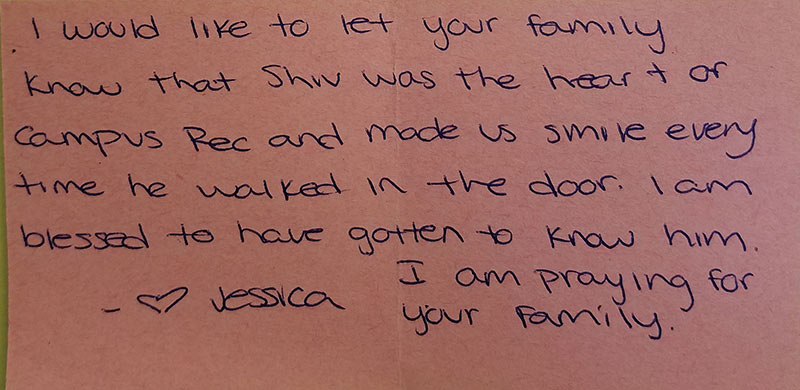 I would like to let your family
know that Shiv was the heart of
Campus Rec and made us smile every
time he walked in the door. I am
blessed to have gotten to know him.
I am praying for
your family.
- ♡ Jessica